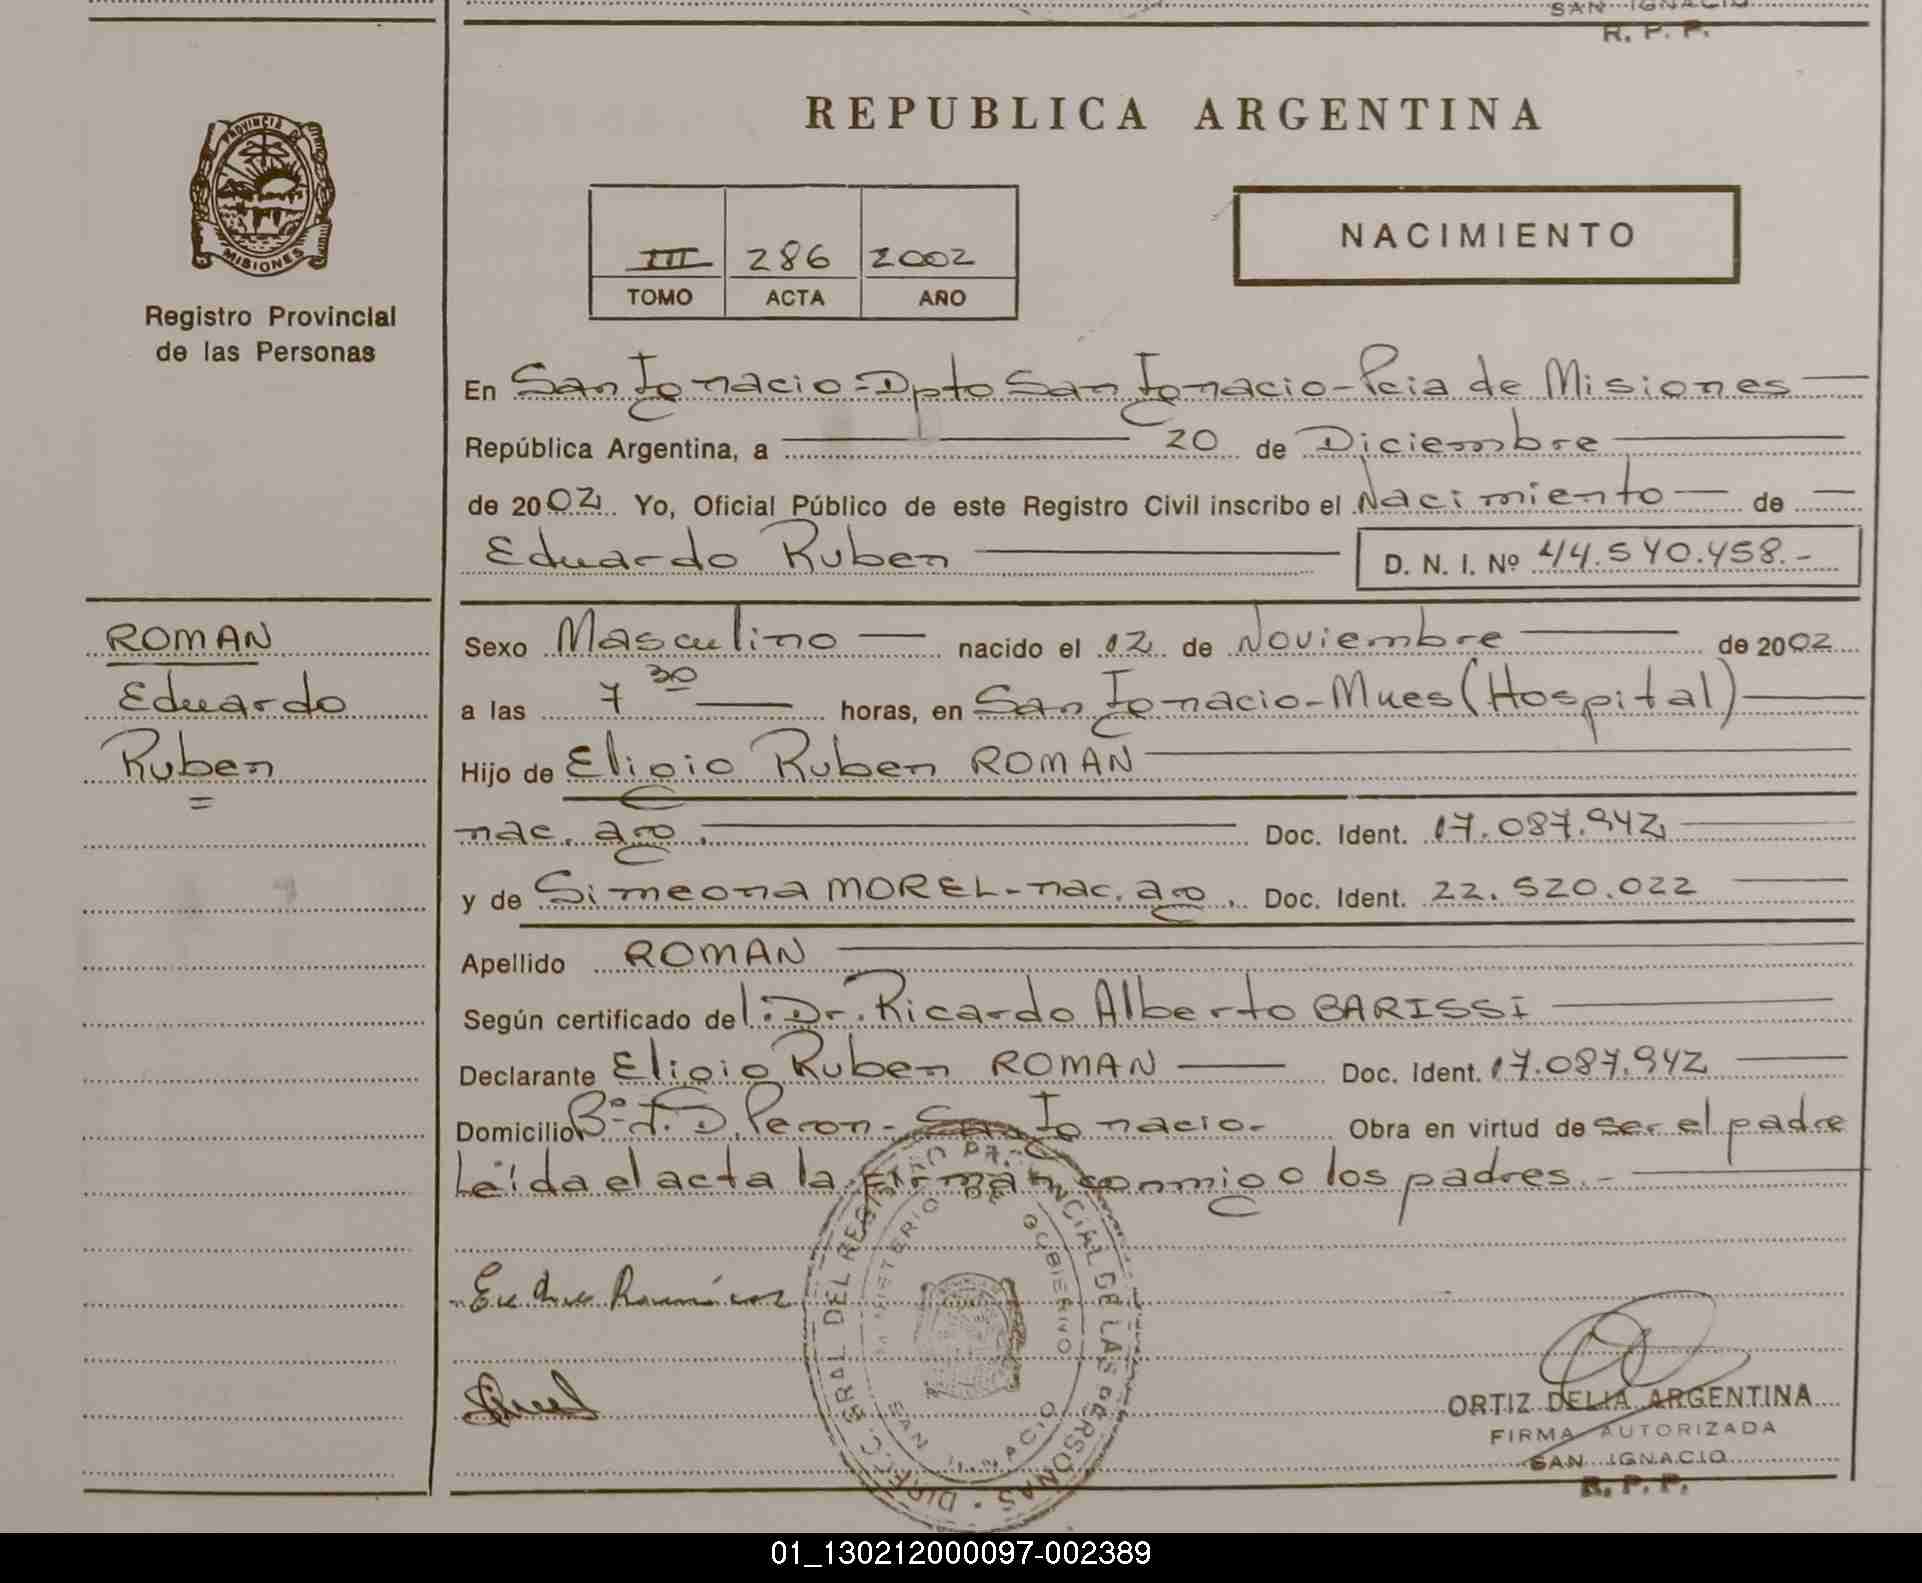 SAN IGNACIO
R. P. P.
REPUBLICA ARGENTINA
PROVINCIA DE
MISIONES
Registro Provincial
de las Personas
III 286 2002
TOMO ACTA AÑO
NACIMIENTO
En San Ignacio-Dpto San Ignacio-Pcia de Misiones
República Argentina, a 20 de Diciembre
de 2002. Yo, Oficial Público de este Registro Civil inscribo el Nacimiento de
Eduardo Ruben D. N. I. Nº 44.540.458.-
ROMAN
Eduardo
Ruben
Sexo Masculino nacido el 12 de Noviembre de 2002
a las 7 30 horas, en San Ignacio-Mnes (Hospital)
Hijo de Eligio Ruben ROMAN
nac. arg. Doc. Ident. 17.087.942
y de Simeona MOREL-nac. arg. Doc. Ident. 22.520.022
Apellido ROMAN
Según certificado del: Dr. Ricardo Alberto BARISSI
Declarante Eligio Ruben ROMAN Doc. Ident. 17.087.942
Domicilio Bº J. D. Peron- San Ignacio- Obra en virtud de ser el padre
Leída el acta la firman conmigo los padres.-
DIRECC. GRAL DEL REGISTRO PROVINCIAL DE LAS PERSONAS
MINISTERIO DE GOBIERNO
SAN IGNACIO
ORTIZ DELIA ARGENTINA
FIRMA AUTORIZADA
SAN IGNACIO
R. P. P.
01_130212000097-002389